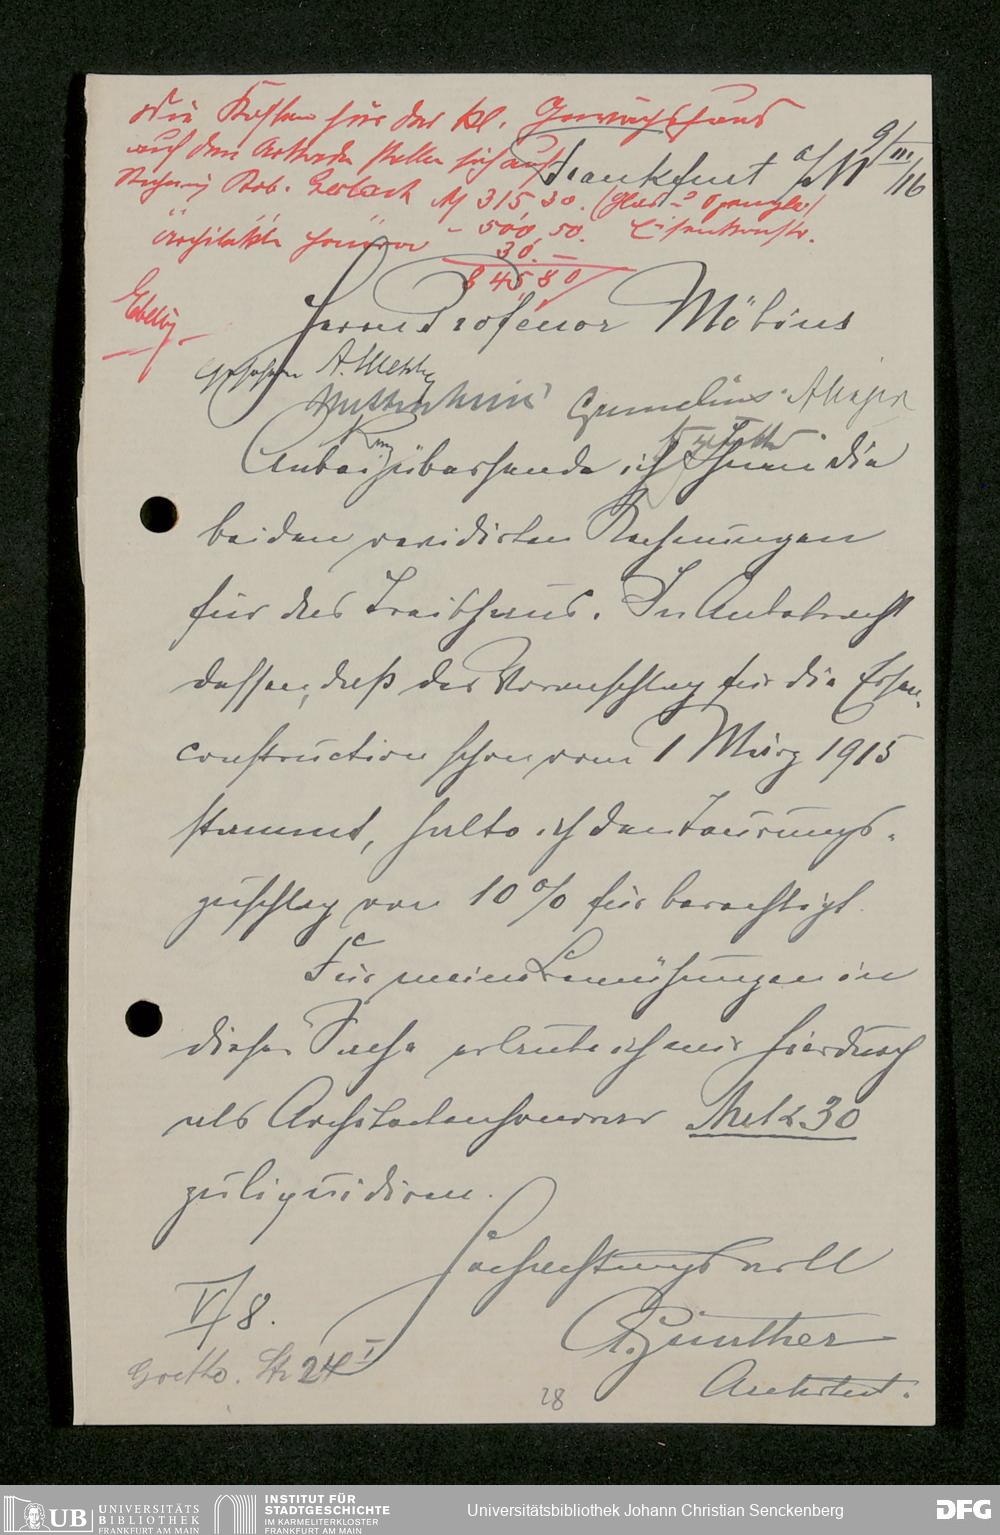 Die Kosten für das kl. Gewächshaus
auf den Arkaden stellen sich auf
Rechnung Rob. Gerlach M 315 30. (Glas u. Spengler)
" " 500, 50. Eisenkonstr.
Architekten Honorar 30. —
845,80
Frankfurt a/M 9/III./16
Herrn Professor Möbius
gesehen A. Metzler
Gmelins A Majer
Anbei übersende ich Ihnen die
beiden revidirten Rechnungen
für das Treibhaus. In Anbetracht
dessen, daß der Voranschlag für die Eisen-
construction schon vom 1 März 1915
stammt, halte ich den Teurungs-
zuschlag von 10 % für berechtigt.
Für meine Bemühungen in
dieser Sache erlaube ich mir hierdurch
als Architectenhonorar Mark 30
zu liquidiren.
Hochachtungsvoll
A. Günther
Architect.
V/8.
Goethe. Str 24 I
28
UB UNIVERSITÄTS
BIBLIOTHEK
FRANKFURT AM MAIN
INSTITUT FÜR
STADTGESCHICHTE
IM KARMELITERKLOSTER
FRANKFURT AM MAIN
Universitätsbibliothek Johann Christian Senckenberg
DFG